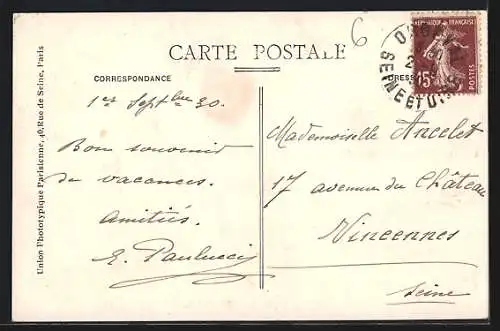 6
CARTE POSTALE
CORRESPONDANCE
1er Septbre 30.
Bon souvenir
de vacances.
Amitiés.
E. Paulucci
Union Phototypique Parisienne, 40, Rue de Seine, Paris
REPUBLIQUE FRANÇAISE
15c
POSTES
SEINE ET OISE
Mademoiselle Ancelet
17 avenue du Château
Vincennes
Seine